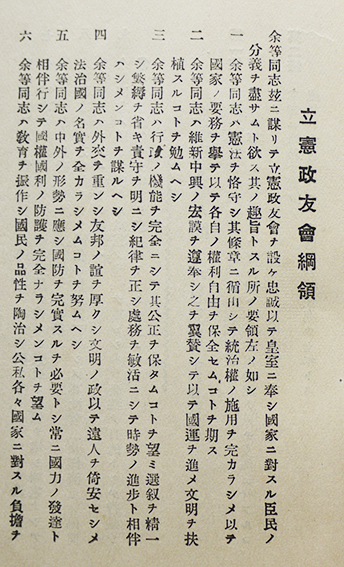 立憲政友會綱領
余等同志玆ニ謀リテ立憲政友會ヲ設ケ忠誠以テ皇室ニ奉シ國家ニ對スル臣民ノ
分義ヲ盡サムト欲ス其ノ趣旨トスル所ノ要領左ノ如シ
一 余等同志ハ憲法ヲ恪守シ其條章ニ循由シテ統治權ノ施用ヲ完カラシメ以テ
國家ノ要務ヲ擧ケ以テ各自ノ權利自由ヲ保全セムコトヲ期ス
二 余等同志ハ維新中興ノ宏謨ヲ遵奉シ之ヲ翼賛シテ以テ國運ヲ進メ文明ヲ扶
植スルコトヲ勉ムヘシ
三 余等同志ハ行政ノ機能ヲ完全ニシテ其公正ヲ保タムコトヲ望ミ選叙ヲ精一
シ繁縟ヲ省キ責守ヲ明ニシ紀律ヲ正シ處務ヲ敏活ニシテ時勢ノ進歩ト相伴
ハシメンコトヲ謀ルヘシ
四 余等同志ハ外交ヲ重ンシ友邦ノ誼ヲ厚クシ文明ノ政以テ遠人ヲ倚安セシメ
法治國ノ名實ヲ全カラシメムコトヲ努ムヘシ
五 余等同志ハ中外ノ形勢ニ應シ國防ヲ完實スルヲ必要トシ常ニ國力ノ發達ト
相伴行シテ國權國利ノ防護ヲ完全ナラシメンコトヲ望ム
六 余等同志ハ教育ヲ振作シ國民ノ品性ヲ陶治シ公私各々國家ニ對スル負擔ヲ